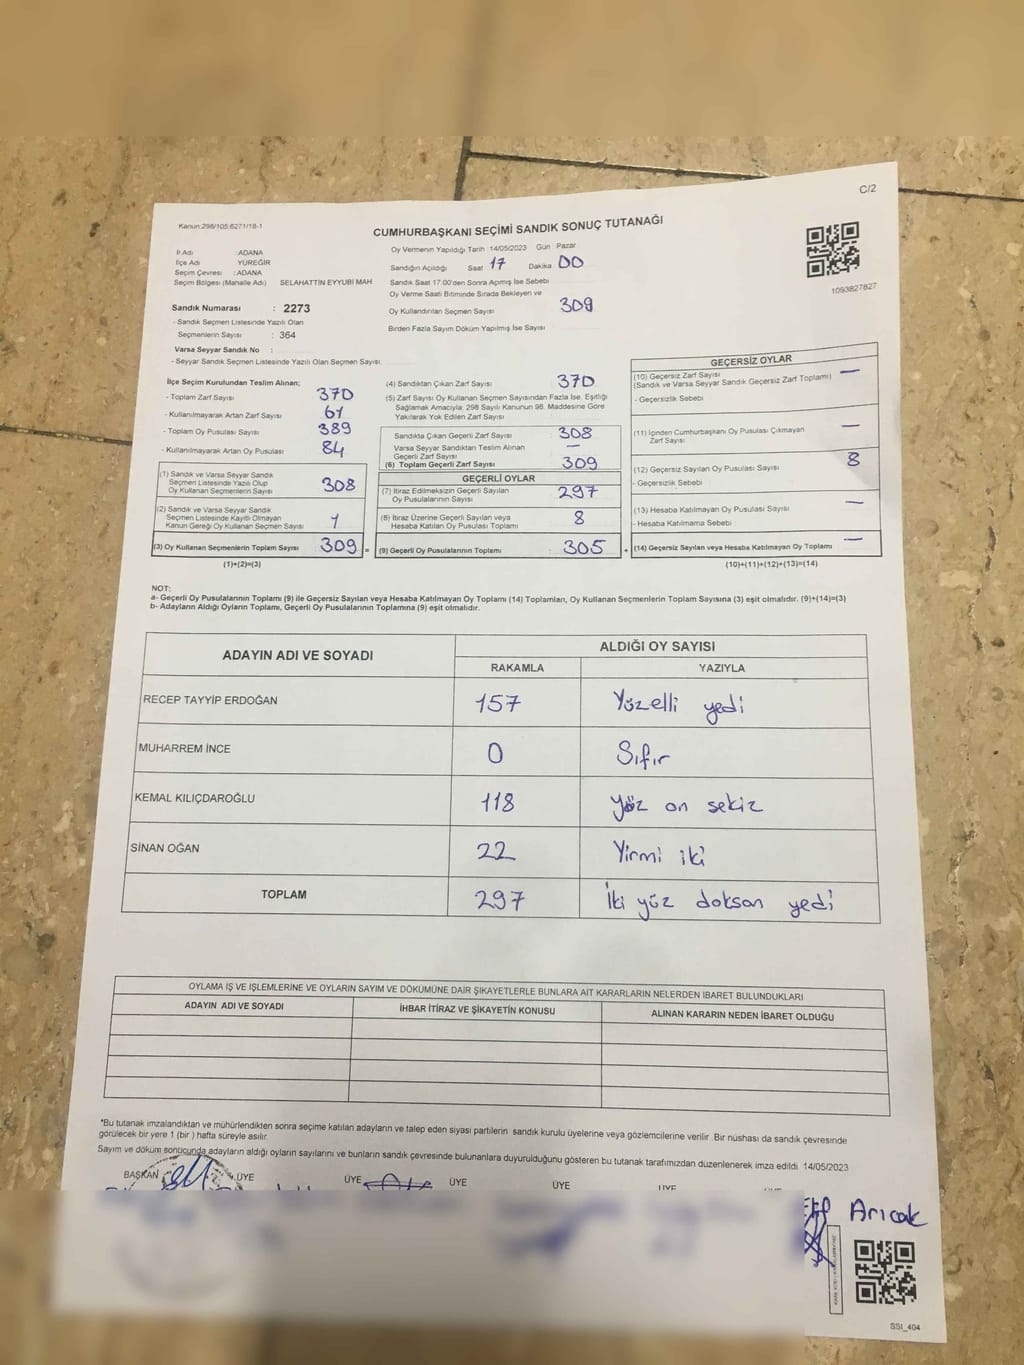 C/2
Kanun:298/105;6271/18-1
CUMHURBAŞKANI SEÇİMİ SANDIK SONUÇ TUTANAĞI
İl Adı :ADANA
İlçe Adı YÜREĞİR
Seçim Çevresi :ADANA
Seçim Bölgesi (Mahalle Adı) SELAHATTİN EYYUBİ MAH
Oy Vermenin Yapıldığı Tarih :14/05/2023 Gün Pazar
Sandığın Açıldığı Saat 17 Dakika 00
Sandık Saat 17:00'den Sonra Açılmış İse Sebebi
Oy Verme Saati Bitiminde Sırada Bekleyen ve
Oy Kullandırılan Seçmen Sayısı 309
Birden Fazla Sayım Döküm Yapılmış İse Sayısı
1093827827
Sandık Numarası : 2273
- Sandık Seçmen Listesinde Yazılı Olan
Seçmenlerin Sayısı : 364
Varsa Seyyar Sandık No :
- Seyyar Sandık Seçmen Listesinde Yazılı Olan Seçmen Sayısı
İlçe Seçim Kurulundan Teslim Alınan;
- Toplam Zarf Sayısı 370
- Kullanılmayarak Artan Zarf Sayısı 61
- Toplam Oy Pusulası Sayısı 389
- Kullanılmayarak Artan Oy Pusulası 84
(1) Sandık ve Varsa Seyyar Sandık
Seçmen Listesinde Yazılı Olup
Oy Kullanan Seçmenlerin Sayısı 308
(2) Sandık ve Varsa Seyyar Sandık
Seçmen Listesinde Kayıtlı Olmayan
Kanun Gereği Oy Kullanan Seçmen Sayısı 1
(3) Oy Kullanan Seçmenlerin Toplam Sayısı 309 =
(1)+(2)=(3)
(4) Sandıktan Çıkan Zarf Sayısı 370
(5) Zarf Sayısı Oy Kullanan Seçmen Sayısından Fazla İse, Eşitliği
Sağlamak Amacıyla; 298 Sayılı Kanunun 98. Maddesine Göre
Yakılarak Yok Edilen Zarf Sayısı
Sandıkta Çıkan Geçerli Zarf Sayısı 308
Varsa Seyyar Sandıktan Teslim Alınan
Geçerli Zarf Sayısı —
(6) Toplam Geçerli Zarf Sayısı 309
GEÇERLİ OYLAR
(7) İtiraz Edilmeksizin Geçerli Sayılan
Oy Pusulalarının Sayısı 297
(8) İtiraz Üzerine Geçerli Sayılan veya
Hesaba Katılan Oy Pusulası Toplamı 8
(9) Geçerli Oy Pusulalarının Toplamı 305 +
GEÇERSİZ OYLAR
(10) Geçersiz Zarf Sayısı —
(Sandık ve Varsa Seyyar Sandık Geçersiz Zarf Toplamı)
- Geçersizlik Sebebi
(11) İçinden Cumhurbaşkanı Oy Pusulası Çıkmayan —
Zarf Sayısı
(12) Geçersiz Sayılan Oy Pusulası Sayısı 8
- Geçersizlik Sebebi
(13) Hesaba Katılmayan Oy Pusulası Sayısı —
- Hesaba Katılmama Sebebi
(14) Geçersiz Sayılan veya Hesaba Katılmayan Oy Toplamı —
(10)+(11)+(12)+(13)=(14)
NOT:
a- Geçerli Oy Pusulalarının Toplamı (9) ile Geçersiz Sayılan veya Hesaba Katılmayan Oy Toplamı (14) Toplamları, Oy Kullanan Seçmenlerin Toplam Sayısına (3) eşit olmalıdır. (9)+(14)=(3)
b- Adayların Aldığı Oyların Toplamı, Geçerli Oy Pusulalarının Toplamına (9) eşit olmalıdır.
ADAYIN ADI VE SOYADI ALDIĞI OY SAYISI
RAKAMLA YAZIYLA
RECEP TAYYİP ERDOĞAN 157 Yüzelli yedi
MUHARREM İNCE 0 Sıfır
KEMAL KILIÇDAROĞLU 118 yüz on sekiz
SİNAN OĞAN 22 Yirmi iki
TOPLAM 297 İki yüz doksan yedi
OYLAMA İŞ VE İŞLEMLERİNE VE OYLARIN SAYIM VE DÖKÜMÜNE DAİR ŞİKAYETLERLE BUNLARA AİT KARARLARIN NELERDEN İBARET BULUNDUKLARI
ADAYIN ADI VE SOYADI İHBAR İTİRAZ VE ŞİKAYETİN KONUSU ALINAN KARARIN NEDEN İBARET OLDUĞU
*Bu tutanak imzalandıktan ve mühürlendikten sonra seçime katılan adayların ve talep eden siyasi partilerin sandık kurulu üyelerine veya gözlemcilerine verilir. Bir nüshası da sandık çevresinde
görülecek bir yere 1 (bir) hafta süreyle asılır.
Sayım ve döküm sonucunda adayların aldığı oyların sayılarını ve bunların sandık çevresinde bulunanlara duyurulduğunu gösteren bu tutanak tarafımızdan düzenlenerek imza edildi. 14/05/2023
BAŞKAN ÜYE ÜYE ÜYE ÜYE ÜYE
Elif Arıcak
SSI_404